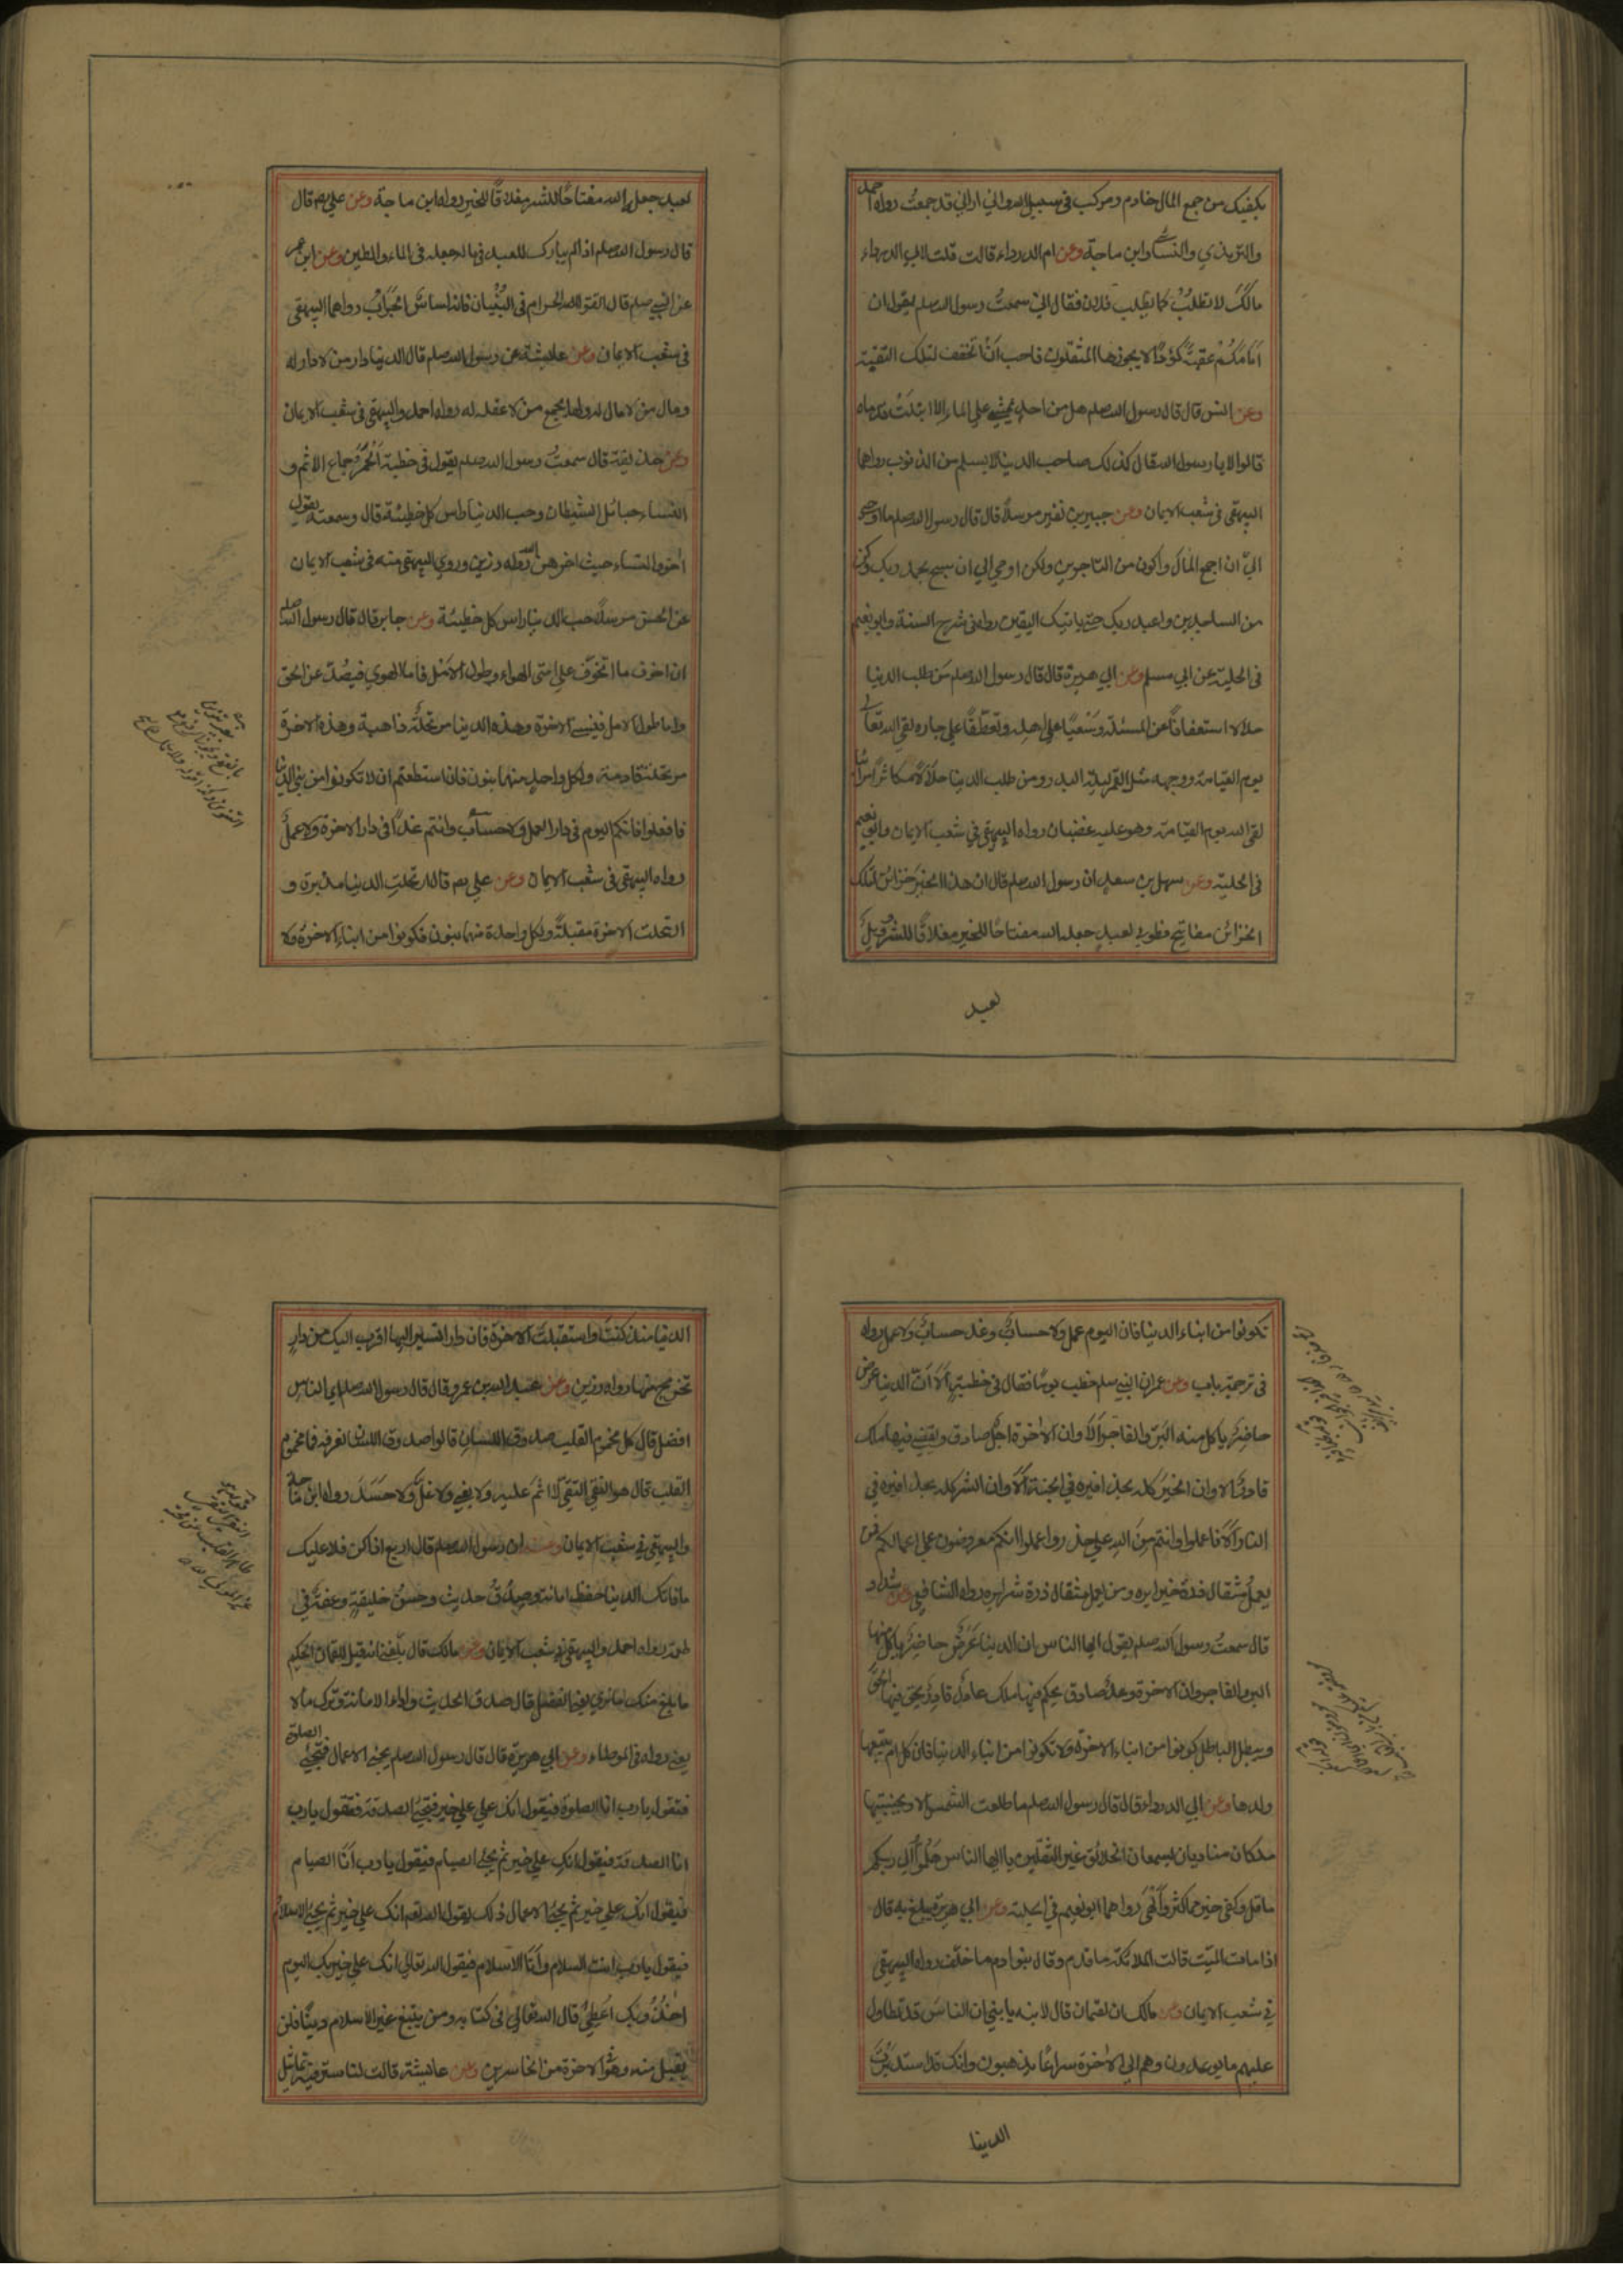 يكفيك من جمع المال خادم ومركب في سبيل الله واني اراني قد جمعت رواه احمد
والترمذي والنسائي وابن ماجة وعن ام الدرداء قالت قلت لابي الدرداء
مالك لا تطلب كما يطلب فلان فقال اني سمعت رسول الله صلعم يقول ان
امامكم عقبة كؤدا لا يجوزها المثقلون فاحب ان اتخفف لتلك العقبة
وعن انس قال قال رسول الله صلعم هل من احد يمشي على الماء الا ابتلت قدماه
قالوا لا يا رسول الله قال كذلك صاحب الدنيا لا يسلم من الذنوب رواهما
البيهقي في شعب الايمان وعن جبير بن نفير مرسلا قال قال رسول الله صلعم ما اوحي
الي ان اجمع المال واكون من التاجرين ولكن اوحي الي ان سبح بحمد ربك وكن
من الساجدين واعبد ربك حتى ياتيك اليقين رواه في شرح السنة وابو نعيم
في الحلية عن ابي مسلم وعن ابي هريرة قال قال رسول الله صلعم من طلب الدنيا
حلالا استعفافا عن المسئلة وسعيا على اهله وتعطفا على جاره لقي الله تعالى
يوم القيامة ووجهه مثل القمر ليلة البدر ومن طلب الدنيا حلالا مكاثرا مرائيا
لقي الله يوم القيامة وهو عليه غضبان رواه البيهقي في شعب الايمان وابو نعيم
في الحلية وعن سهل بن سعد ان رسول الله صلعم قال ان هذا الخير خزائن لتلك
الخزائن مفاتيح فطوبى لعبد جعله الله مفتاحا للخير مغلاقا للشر وويل
لعبد
لعبد جعله الله مفتاحا للشر مغلاقا للخير رواه ابن ماجة وعن علي رض قال
قال رسول الله صلعم اذا لم يبارك للعبد في ماله جعله في الماء والطين وعن ابن عمر
عن النبي صلعم قال اتقوا الله الحرام في البنيان فانه اساس الخراب رواهما البيهقي
في شعب الايمان وعن عايشة عن رسول الله صلعم قال الدنيا دار من لا دار له
ومال من لا مال له ولها يجمع من لا عقل له رواه احمد والبيهقي في شعب الايمان
وعن حذيفة قال سمعت رسول الله صلعم يقول في خطبته الخمر جماع الاثم و
النساء حبائل الشيطان وحب الدنيا راس كل خطيئة قال وسمعته يقول
اخروا النساء حيث اخرهن الله رواه رزين وروي البيهقي منه في شعب الايمان
عن الحسن مرسلا حب الدنيا راس كل خطيئة وعن جابر قال قال رسول الله صلعم
ان اخوف ما اتخوف على امتي الهواء وطول الامل فاما الهوي فيصد عن الحق
واما طول الامل فينسي الاخرة وهذه الدنيا مرتحلة ذاهبة وهذه الاخرة
مرتحلة قادمة ولكل واحد منهما بنون فان استطعتم ان لا تكونوا من بني الدنيا
فافعلوا فانكم اليوم في دار العمل ولا حساب وانتم غدا في دار الاخرة ولا عمل
رواه البيهقي في شعب الايمان وعن علي رض قال ارتحلت الدنيا مدبرة و
ارتحلت الاخرة مقبلة ولكل واحدة منهما بنون فكونوا من ابناء الاخرة ولا
تكونوا من ابناء الدنيا فان اليوم عمل ولا حساب وغدا حساب ولا عمل رواه
في ترجمة باب وعن عمر ان النبي صلعم خطب يوما فقال في خطبته الا ان الدنيا عرض
حاضر ياكل منه البر والفاجر الا وان الاخرة اجل صادق ويقضي فيها ملك
قادر الا وان الخير كله بحذافيره في الجنة الا وان الشر كله بحذافيره في
النار الا فاعملوا وانتم من الله على حذر واعلموا انكم معروضون على اعمالكم فمن
يعمل مثقال ذرة خيرا يره ومن يعمل مثقال ذرة شرا يره رواه الشافعي وعن شداد
قال سمعت رسول الله صلعم يقول ايها الناس ان الدنيا عرض حاضر ياكل منها
البر والفاجر وان الاخرة وعد صادق يحكم فيها ملك عادل قادر يحق فيها الحق
ويبطل الباطل كونوا من ابناء الاخرة ولا تكونوا من ابناء الدنيا فان كل ام يتبعها
ولدها وعن ابي الدرداء قال قال رسول الله صلعم ما طلعت الشمس الا وبجنبتيها
ملكان يناديان يسمعان الخلائق غير الثقلين يا ايها الناس هلموا الى ربكم
ما قل وكفى خير مما كثر والهى رواهما ابو نعيم في الحلية وعن ابي هريرة يبلغ به قال
اذا مات الميت قالت الملائكة ما قدم وقال بنو ادم ما خلف رواه البيهقي
في شعب الايمان وعن مالك ان لقمان قال لابنه يا بني ان الناس قد تطاول
عليهم ما يوعدون وهم الي الاخرة سراعا يذهبون وانك قد استدبرت
الدنيا
الدنيا منذ كنت واستقبلت الاخرة وان دارا تسير اليها اقرب اليك من دار
تخرج منها رواه رزين وعن عبد الله بن عمرو قال قال رسول الله صلعم اي الناس
افضل قال كل مخموم القلب صدوق اللسان قالوا صدوق اللسان نعرفه فما مخموم
القلب قال هو النقي التقي لا اثم عليه ولا بغي ولا غل ولا حسد رواه ابن ماجة
والبيهقي في شعب الايمان وعنه ان رسول الله صلعم قال اربع اذا كن فلا عليك
ما فاتك الدنيا حفظ امانة وصدق حديث وحسن خليقة وعفة في
طعمة رواه احمد والبيهقي في شعب الايمان وعن مالك قال بلغني انه قيل للقمان الحكيم
ما بلغ منك ما نرى يعني الفضل قال صدق الحديث واداء الامانة وترك ما لا
يعني رواه في الموطاء وعن ابي هريرة قال قال رسول الله صلعم يجيء الاعمال فتجيء الصلوة
فتقول يا رب انا الصلوة فيقول انك على خير فتجيء الصدقة فتقول يا رب
انا الصدقة فيقول انك على خير ثم يجيء الصيام فيقول يا رب انا الصيام
فيقول انك على خير ثم يجيء الاعمال ذلك يقول الله تعم انك على خير ثم يجيء الاسلام
فيقول يا رب انت السلام وانا الاسلام فيقول الله تعالى انك على خير بك اليوم
اخذ وبك اعطي قال الله تعالي في كتابه ومن يبتغ غير الاسلام دينا فلن
يقبل منه وهو في الاخرة من الخاسرين وعن عايشة قالت لنا ستر فيه تماثيل